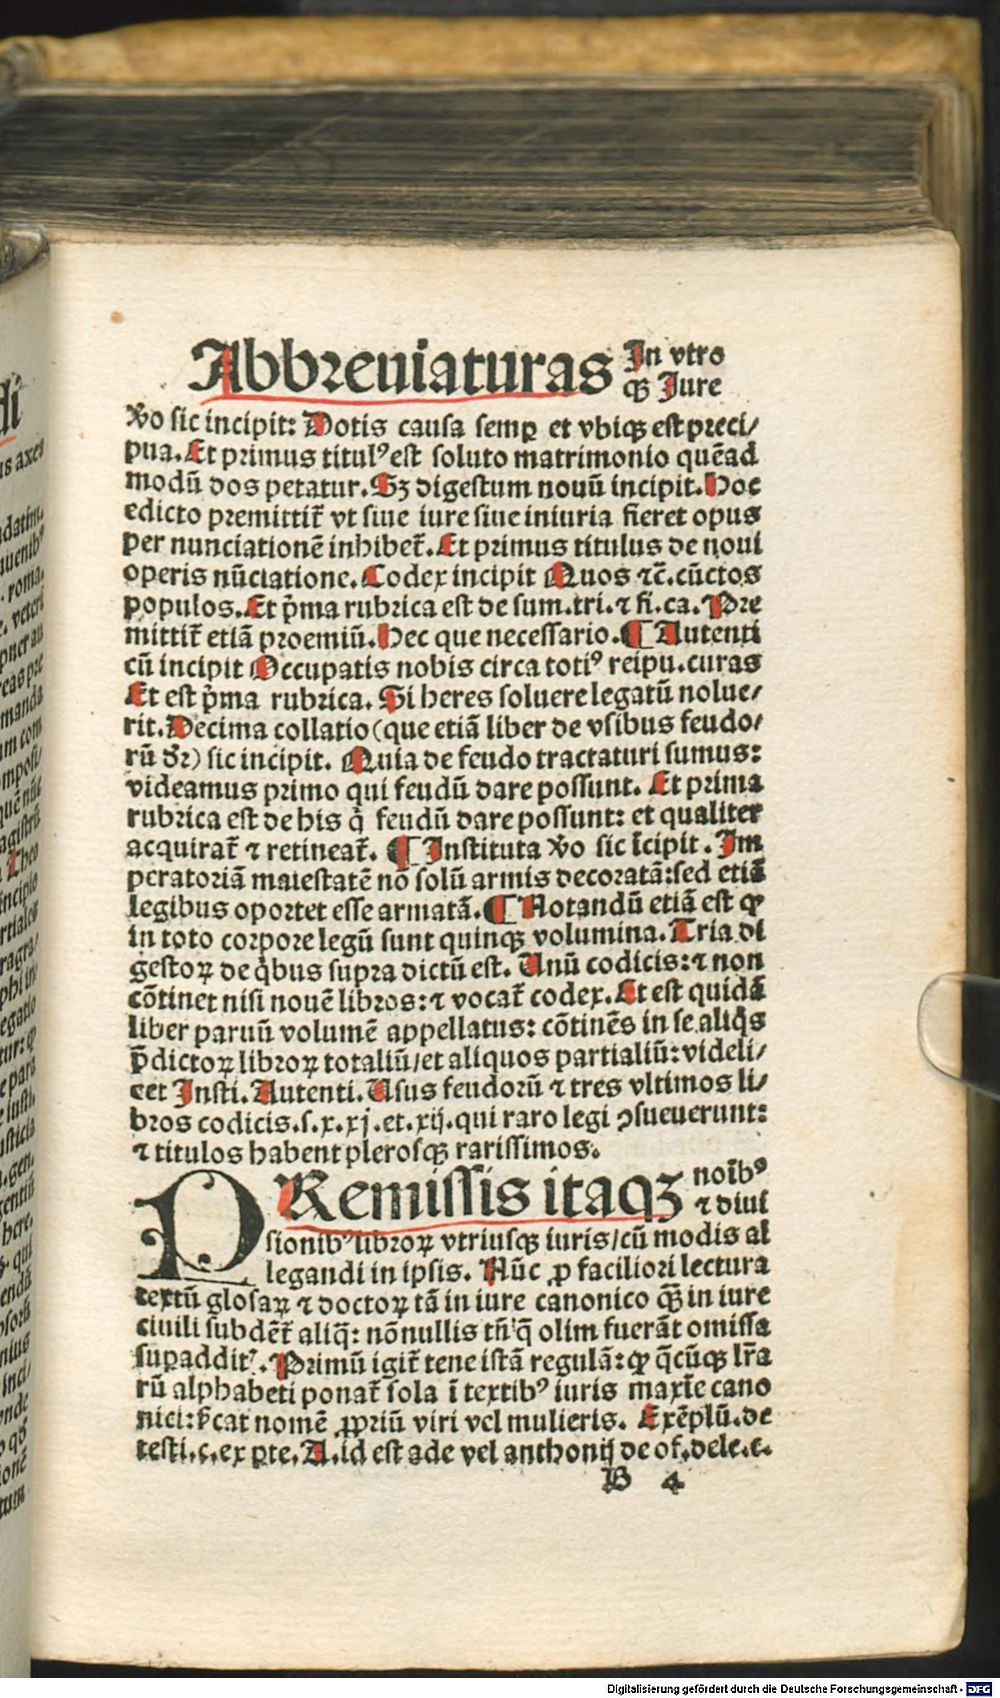 Abbreuiaturas In vtro
qꝫ Jure
Ꝟo sic incipit: Dotis causa semꝑ et vbiqꝫ est preci/
pua. Et primus titulꝰ est soluto matrimonio quēad
modū dos petatur. Sꝫ digestum nouū incipit. Hoc
edicto premittit᷑ vt siue iure siue iniuria fieret opus
per nunciationē inhibet᷑. Et primus titulus de noui
operis nūciatione. Codex incipit Quos ⁊c̄. cūctos
populos. Et p̄ma rubrica est de sum. tri. ⁊ fi. ca. Pre
mittit᷑ etiā proemiū. Hec que necessario. ¶ Autenti
cū incipit Occupatis nobis circa totiꝰ reipu. curas
Et est p̄ma rubrica. Si heres soluere legatū nolue/
rit. Decima collatio (que etiā liber de vsibus feudo/
rū d̄r) sic incipit. Quia de feudo tractaturi sumus:
videamus primo qui feudū dare possunt. Et prima
rubrica est de his q̇ feudū dare possunt: et qualiter
acquirat᷑ ⁊ retineat᷑. ¶ Instituta ꝟo sic īcipit. Im
peratoriā maiestatē nō solū armis decoratā: sed etiā
legibus oportet esse armatā. ¶ Notandū etiā est ꝙ
in toto corpore legū sunt quinqꝫ volumina. Tria di
gestoꝝ de q̇bus supra dictū est. Unū codicis: ⁊ non
cōtinet nisi nouē libros: ⁊ vocat᷑ codex. Et est quidā
liber paruū volumē appellatus: cōtinēs in se aliq̇s
p̄dictoꝝ libroꝝ totaliū/ et aliquos partialiū: videli/
cet Insti. Autenti. Usus feudorū ⁊ tres vltimos li/
bros codicis. s. x. xj. et. xij. qui raro legi ꝯsueuerunt:
⁊ titulos habent plerosqꝫ rarissimos.
PRemissis itaqꝫ noīb9
⁊ diui
sionibꝰ libroꝝ vtriusqꝫ iuris/ cū modis al
legandi in ipsis. Nūc ꝓ faciliori lectura
textū glosaꝝ ⁊ doctoꝝ tā in iure canonico qꝫ̄ in iure
ciuili subdēt᷑ aliq̄: nōnullis tn̄ q̄ olim fuerāt omissa
suꝑadditꝭ. Primū igit᷑ tene istā regulā: ꝙ q̄cūqꝫ lr̄a
rū alphabeti ponat᷑ sola ī textibꝰ iuris maxīe cano
nici: s̄cat nomē ꝓpriū viri vel mulieris. Exēplū. de
testi. c. ex ꝑte. A. id est ade vel anthonij de of. dele. c.
B 4
Digitalisierung gefördert durch die Deutsche Forschungsgemeinschaft - DFG